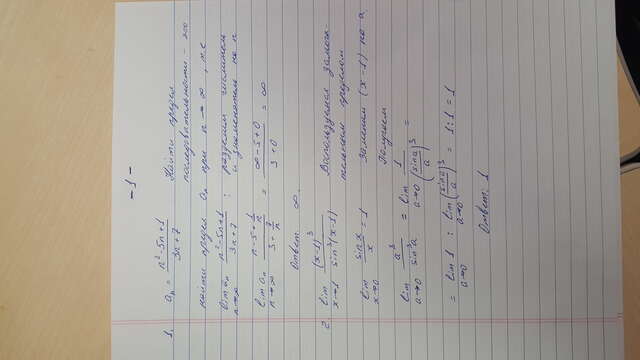 - 1 -
1. aₙ = (n² - 5n + 1)/(3n + 7) Найти предел
последовательности - это
найти предел aₙ при n → ∞, т.е
lim aₙ n→∞ (n² - 5n + 1)/(3n + 7) : разделим числитель
и знаменатель на n
lim aₙ n→∞ (n - 5 + 1/n)/(3 + 7/n) = (∞ - 5 + 0)/(3 + 0) = ∞
Ответ ∞.
2. lim x→1 (x-1)³/sin³(x-1) Воспользуемся замеча-
тельным пределом
lim x→0 sin x/x = 1 Заменим (x-1) на a
Получаем
lim a→0 a³/sin³a = lim a→0 1/(sin a/a)³ =
= lim a→0 1 : lim a→0 (sin a/a)³ = 1:1 = 1
Ответ: 1